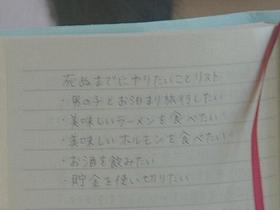 死ぬまでにやりたいことリスト
・男の子とお泊まり旅行したい
・美味しいラーメンを食べたい
・美味しいホルモンを食べたい!
・お酒を飲みたい
・貯金を使い切りたい